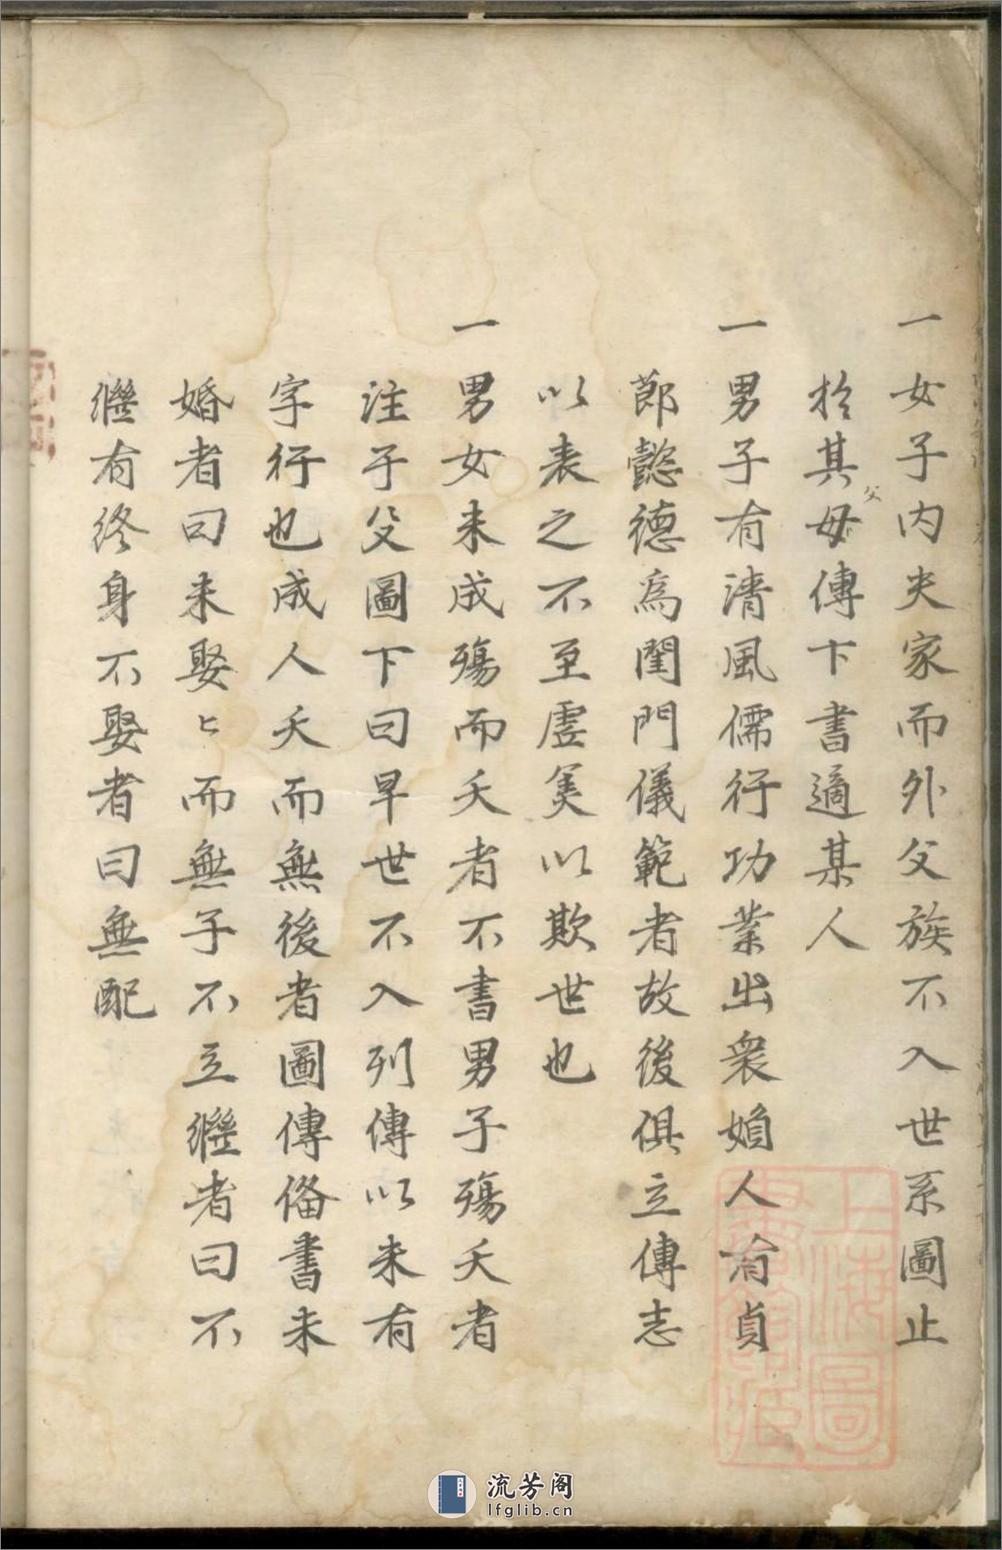 一女子内夫家而外父族不入世系圖止
於其母父傳下書適某人
一男子有清風儒行功業出衆婦人有貞
節懿德為閨門儀範者故後俱立傳志
以表之不至虛美以欺世也
一男女未成殤而夭者不書男子殤夭者
注于父圖下曰早世不入列傳以未有
字行也成人夭而無後者圖傳俻書未
婚者曰未娶〻而無子不立繼者曰不
繼有終身不娶者曰無配
上海圖書館藏
流芳阁
lfglib.cn